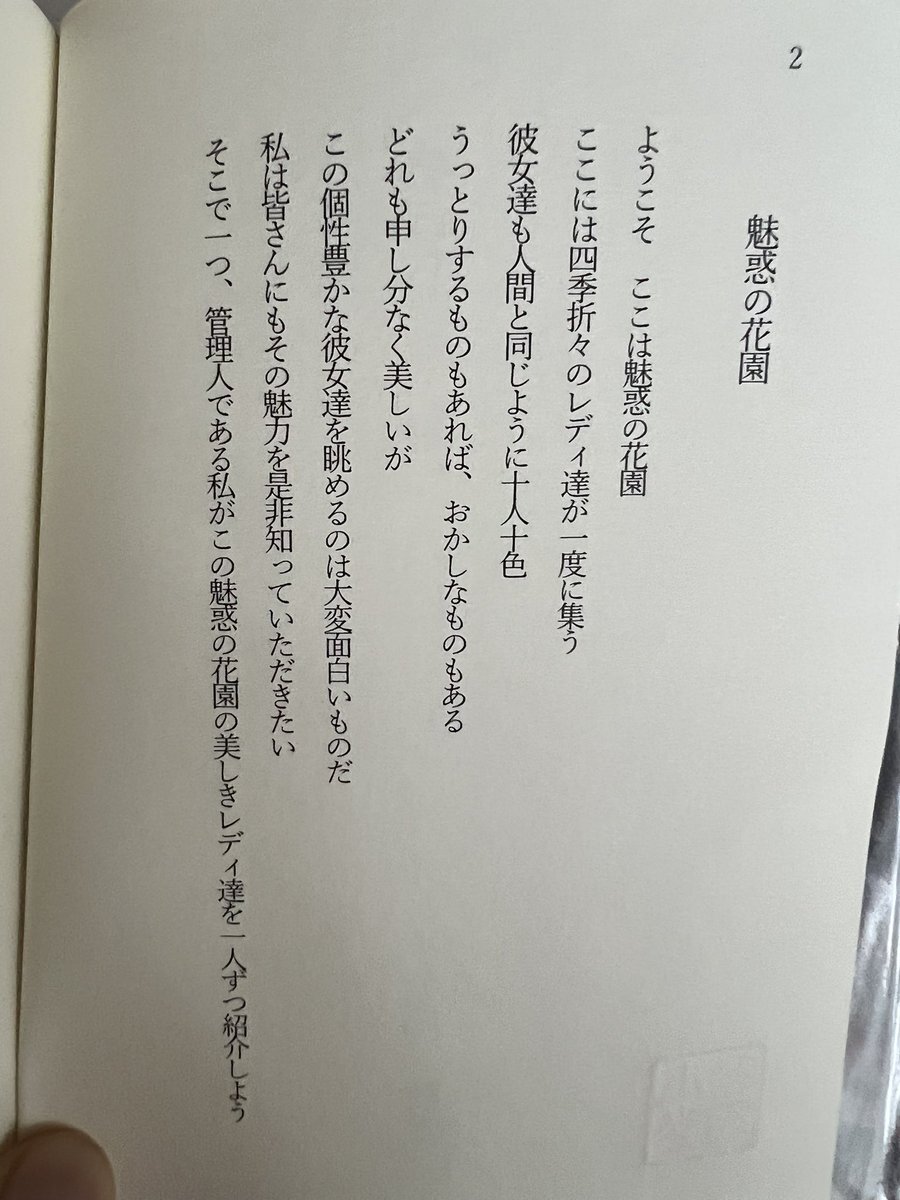 2
魅惑の花園
ようこそ　ここは魅惑の花園
ここには四季折々のレディ達が一度に集う
彼女達も人間と同じように十人十色
うっとりするものもあれば、おかしなものもある
どれも申し分なく美しいが
この個性豊かな彼女達を眺めるのは大変面白いものだ
私は皆さんにもその魅力を是非知っていただきたい
そこで一つ、管理人である私がこの魅惑の花園の美しきレディ達を一人ずつ紹介しよう